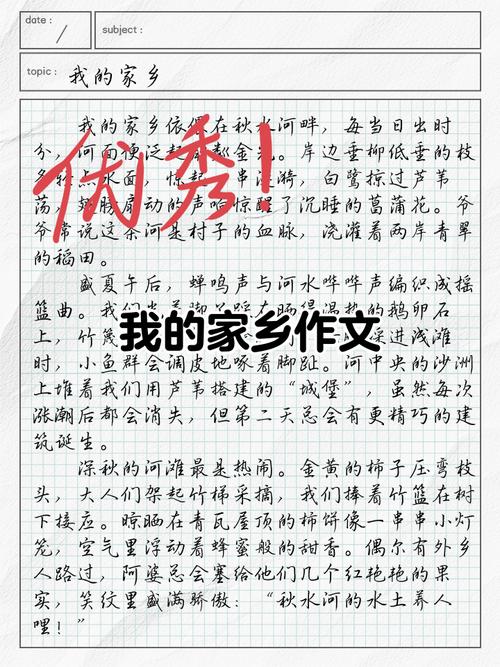 date :
subject :
topic : 我的家乡
我的家乡依偎在秋水河畔，每当日出时
分，河面便泛起 金光。岸边垂柳低垂的枝
条轻点水面，惊起一串涟漪，白鹭掠过芦苇
荡，翅膀扇动的声响惊醒了沉睡的菖蒲花。爷
爷常说这条河是村子的血脉，浇灌着两岸青翠
的稻田。
优秀！
盛夏午后，蝉鸣声与河水哗哗声编织成摇
篮曲。我们光着脚丫踩在晒得温热的鹅卵石
上，竹篾 探进浅滩
我的家乡作文
时，小鱼群会调皮地啄着脚趾。河中央的沙洲
上堆着我们用芦苇搭建的“城堡”，虽然每次
涨潮后都会消失，但第二天总会有更精巧的建
筑诞生。
深秋的河滩最是热闹。金黄的柿子压弯枝
头，大人们架起竹梯采摘，我们捧着竹篮在树
下接应。晾晒在青瓦屋顶的柿饼像一串串小灯
笼，空气里浮动着蜂蜜般的甜香。偶尔有外乡
人路过，阿婆总会塞给他们几个红艳艳的果
实，笑纹里盛满骄傲：“秋水河的水土养人
哩！”